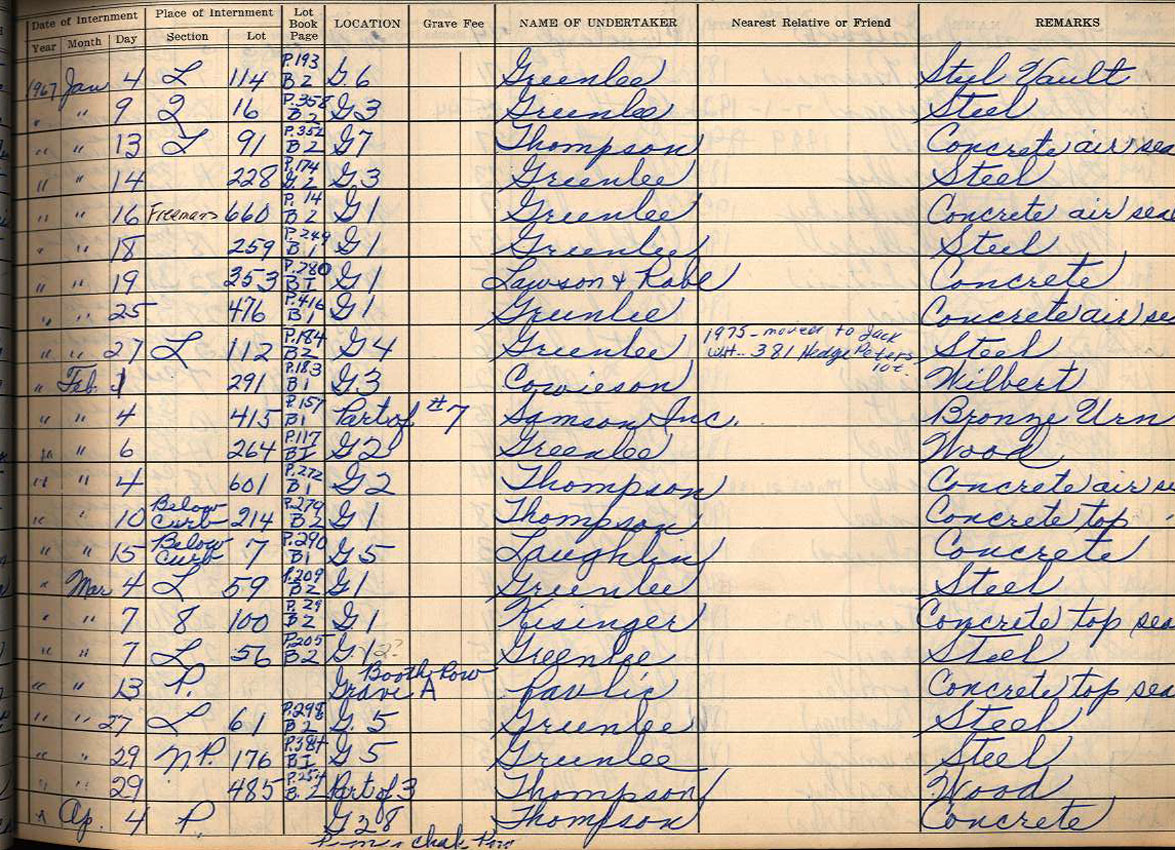 Date of Internment Place of Internment Lot Book Page LOCATION Grave Fee NAME OF UNDERTAKER Nearest Relative or Friend REMARKS
Year Month Day Section Lot
1967 Jan 4 L 114 P.193 B2 G.6 Greenlee Steel Vault
" " 9 2 16 P.358 B2 G3 Greenlee Steel
" " 13 L 91 P.352 B2 G7 Thompson Concrete air sea
" " 14 228 P.174 B.2 G3 Greenlee Steel
" " 16 Freemans 660 P. 14 B2 G1 Greenlee Concrete air sea
" " 18 259 P.249 B1 G1 Greenlee Steel
" " 19 353 P.280 B1 G1 Lawson & Rabe Concrete
" " 25 476 P.416 B1 G1 Greenlee Concrete air se
" " 27 L 112 P.184 B2 G4 Greenlee 1975 - moved to Jack Peters lot - 381 Hedge Steel
" Feb. 1 291 P.183 B1 G3 Cowieson Wilbert
" " 4 415 P.157 B1 Part of #7 Samson Inc. Bronze Urn
" " 6 264 P.117 B1 G2 Greenlee Wood
" " 4 601 P.272 B1 G2 Thompson Concrete air se
" " 10 Below Curb 214 P.279 B2 G1 Thompson Concrete top
" " 15 Below Curb 7 P.290 B1 G.5 Laughlin Concrete
" Mar 4 L 59 P.209 B2 G1 Greenlee Steel
" " 7 8 100 P. 29 B2 G1 Kisinger Concrete top sea
" " 7 L 56 P.205 B2 G12? Greenlee Steel
" " 13 P. Booth Row Grave A Pavlic Concrete top sea
" " 27 L 61 P.298 B2 G.5 Greenlee Steel
" " 29 N.P. 176 P.384 B1 G5 Greenlee Steel
" " 29 485 P.254 B.2 Part of 3 Thompson Wood
" Ap. 4 P. G28 Thompson Concrete